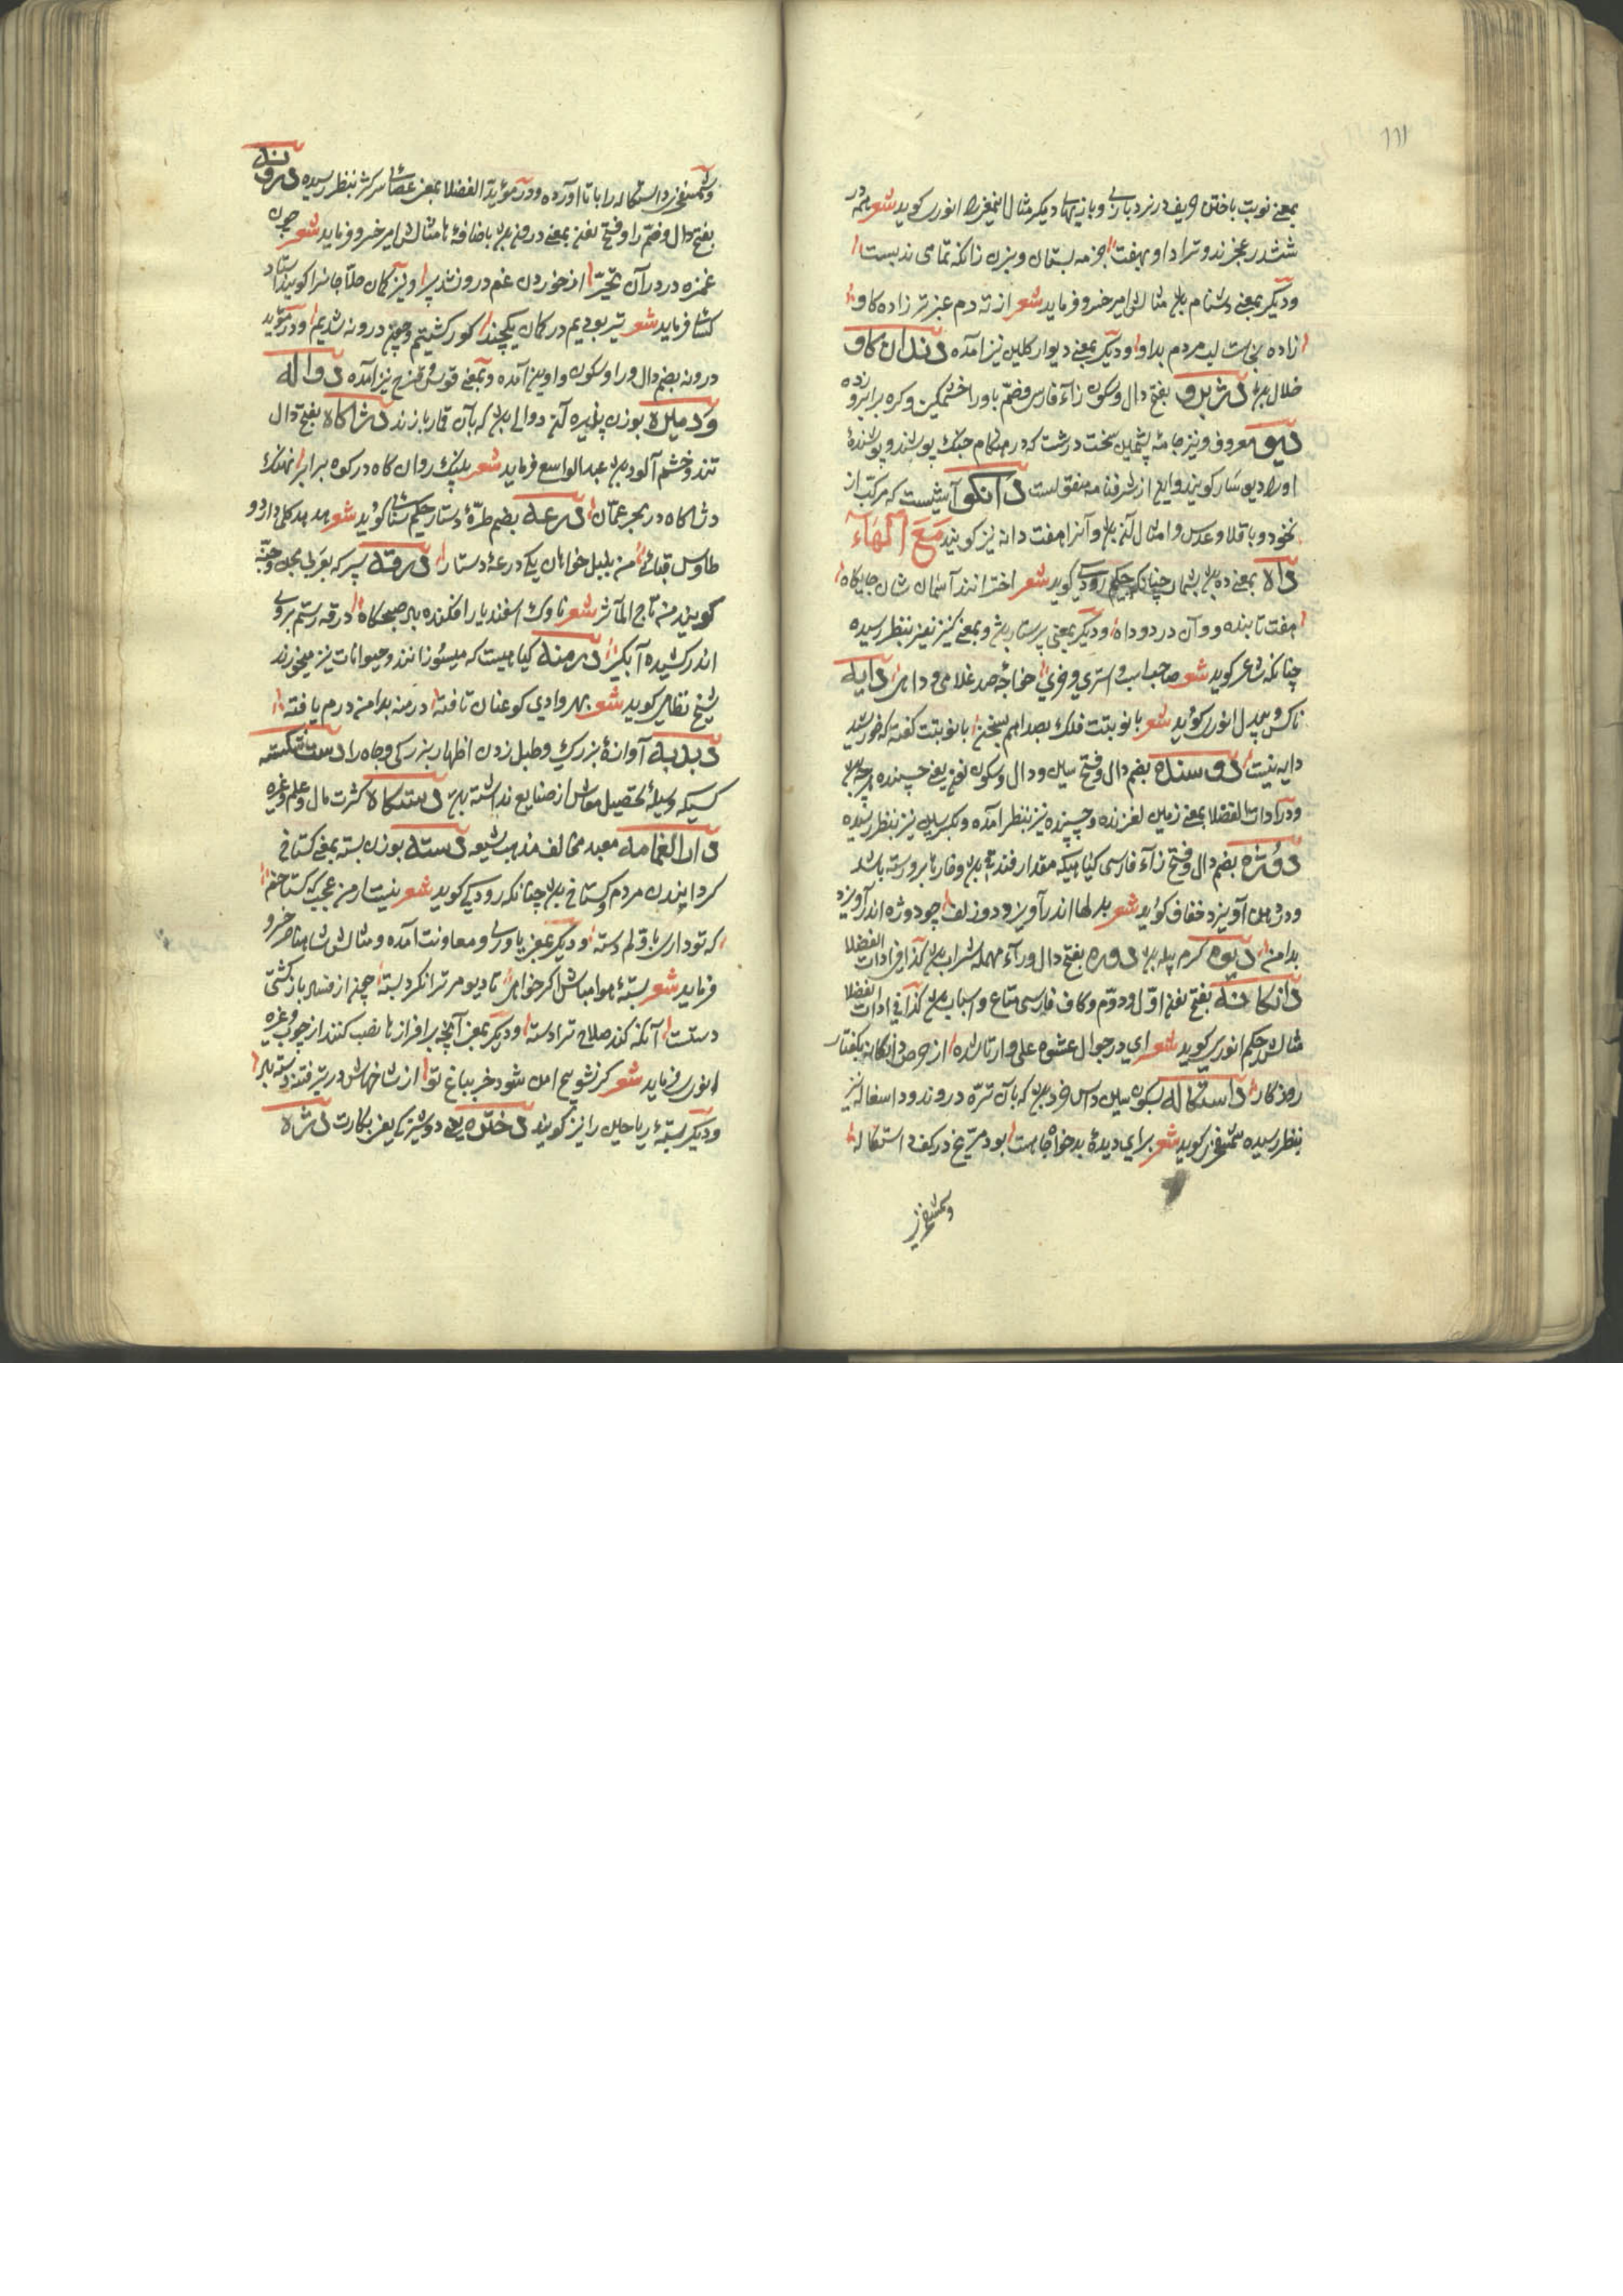 ١١١
بمعنی نوبت باختن حریف در نرد بازی و بازیهای دیکر مثال این معنی را انوری کوید شعر همه در
ششدر عجزند و ترا داو بهفت ضربه بستان و بزن زانکه تمامی ندبست
و دیکر بمعنی دشنام باشد مثالش امیر خسرو فرماید شعر از ته دم عنبر تر زاده کاو
زاده نجاست لب مردم بداو و دیکر بمعنی دیوار کلین نیز آمده دندان کاو
خلال باشد دژبرو بفتح دال و سکون زآء فارسی و ضم با و را خشمکین و کره برابرو زده
دیو معروف و نیز جامهٔ پشمین سخت درشت که در هنکام جنک پوشند و پوشندهٔ
اورا دیو سار کویند و این از شرفنامه منقولست دانکو آشیست که مرکب از
نخود و باقلا و عدس و امثال آن باشد و آنرا هفت دانه نیز کویند مَعَ الْهَآء
داه بمعنی ده باشد بشمار چنانکه حکیم رودکی کوید شعر اخترانند آسمان شان جایکاه
هفت تابنده و وآن در دو داه و دیکر بمعنی پرستار باشد و بمعنی کنیز نیز بنظر رسیده
چنانکه شاعر کوید شعر صاحب اسب و استری و خری خواجهٔ صد غلامی و داهی دایه
ناکس و بیدل انوری کوید شعر با نوبتت فلک بصدا هم سخن با نوبتت کفته که خورشید
دایه نیست دوسنده بضم دال و فتح سین و دال و سکون نون یعنی چسبنده هر چه باشد
و در ادات الفضلا بمعنی زمین لغزنده و چسپنده نیز بنظر آمده و بکسر سین نیز بنظر رسیده
دوژه بضم دال و فتح زآء فارسی کیاهیکه مقدار فندقی باشد و خارها برو رسته باشد
و در دامن آویزد خفاف کوید شعر بدلها اندر آویزد دو زلف چو دوژه اندر آویزد
بدامن دیوه کرم پیله باشد دوره بفتح دال و رآء مهمله شراب باشد کذا فی ادات الفضلا
دانکانه بفتح نون اول و دوم و کاف فارسی متاع و اسباب باشد کذا فی ادات الفضلا
مثالش حکیم انوری کوید شعر ای در جوال عشوه علی وار ناشده از حرص دانکانه بکفتار
روزکار داستکاله بسکون سین داس خرد باشد که بآن تره دروند و داسغاله نیز
بنظر رسیده شمس فخری کوید شعر برای دیدهٔ بدخواه جاهت بود مریخ در کف داستکاله
و شمس فخری
و شمس فخری داستکاله را با تا آورده و در مؤید الفضلا بمعنی عصای سرکژ بنظر رسیده درونه
بفتح دال و ضم را و فتح نون بمعنی درون باشد باضافهٔ ها مثالش امیر خسرو فرماید شعر چون
غمزه در درآن تحیر از خوردن غم درونه شد پر و نیز کمان حلاجانرا کویند استاد
کسائی فرماید شعر تیر بودیم در کمان یکچند کوز کشتیم و چون درونه شدیم و در مؤید
درونه بضم دال و را و سکون واو نیز آمده و بمعنی قوس قزح نیز آمده دواله
و دمیله بوزن پلیره آن دوالی باشد که بآن قمار بازند دژاکاه بفتح دال
تند و خشم آلود باشد عبدالواسع فرماید شعر پلنک روان کاه در کوه بربر نهنک
دژاکاه در بحر عمان درعه بضم طرهٔ دستار حکیم سنائی کوید شعر هدهد کل دارد و
طاوس قبائی من بلبل خواهان یکی درعهٔ دستار درقه سپر که بعربی مجن و جنه
کویند من تاج المآثر شعر ناوک اسفندیار افکنده بر صبحکاه درقه رستم بروی
اندر کشیده آبکیر درمنه کیاهیست که میسوزانند و حیوانات نیز میخورند
شیخ نظامی کوید شعر بهر وادی کو عنان تافته درمنه بدامن درم یافته
دبدبه آوازهٔ بزرک و طبل زدن اظهار بزرکی و جاه را دست شکسته
کسیکه وسیلهٔ تحصیل معاش از صنایع نداشته باشد دستکاه کثرت مال و علم و غیره
دارالغامه معبد مخالف مذهب شیعه دسته بوزن بسته بمعنی کستاخی
کردانیدن مردم و کستاخ باشد چنانکه رودکی کوید شعر نیست از من عجب که کستاخم
که تو دادی باولم دسته و دیکر بمعنی یاوری و معاونت آمده و مثالش شاه ناصر خسرو
فرماید شعر بستهٔ هوا مباش اکر خواهی تا دیو مر ترا نکرد بسته چون از فساد باز کشتی
دستت آنکه کند صلاح ترا دسته و دیکر بمعنی آنچه بر افزارها نصب کنند از چوب و غیره
انوری فرماید شعر کر نشوی ایمن شود خر بباغ تو از شاخهاش در تبر فتنه دسته باد
و دیکر بستهٔ ریاحین را نیز کویند دختره یعنی دوشیزکی یعنی بکارت دژاه